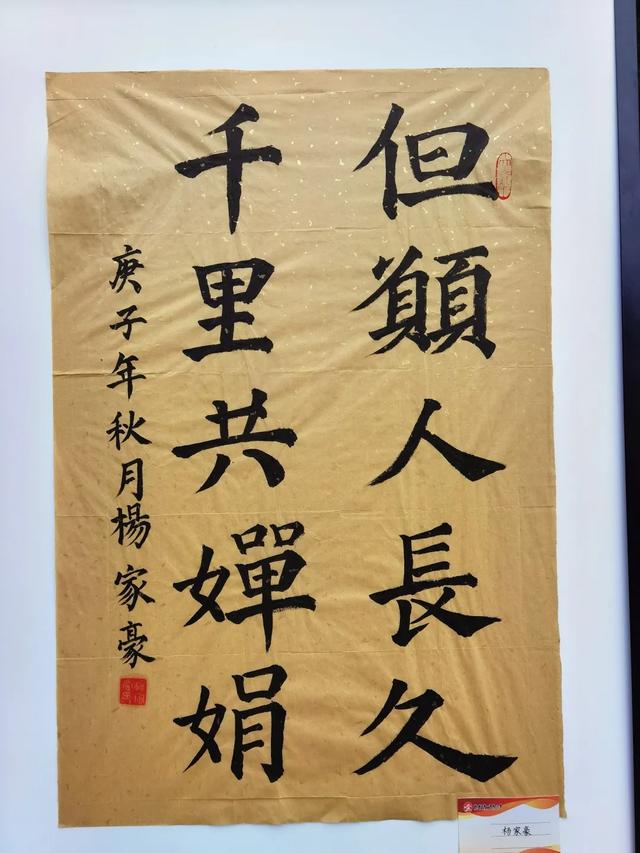 但願人長久
千里共嬋娟
庚子年秋月楊家豪
杨家豪